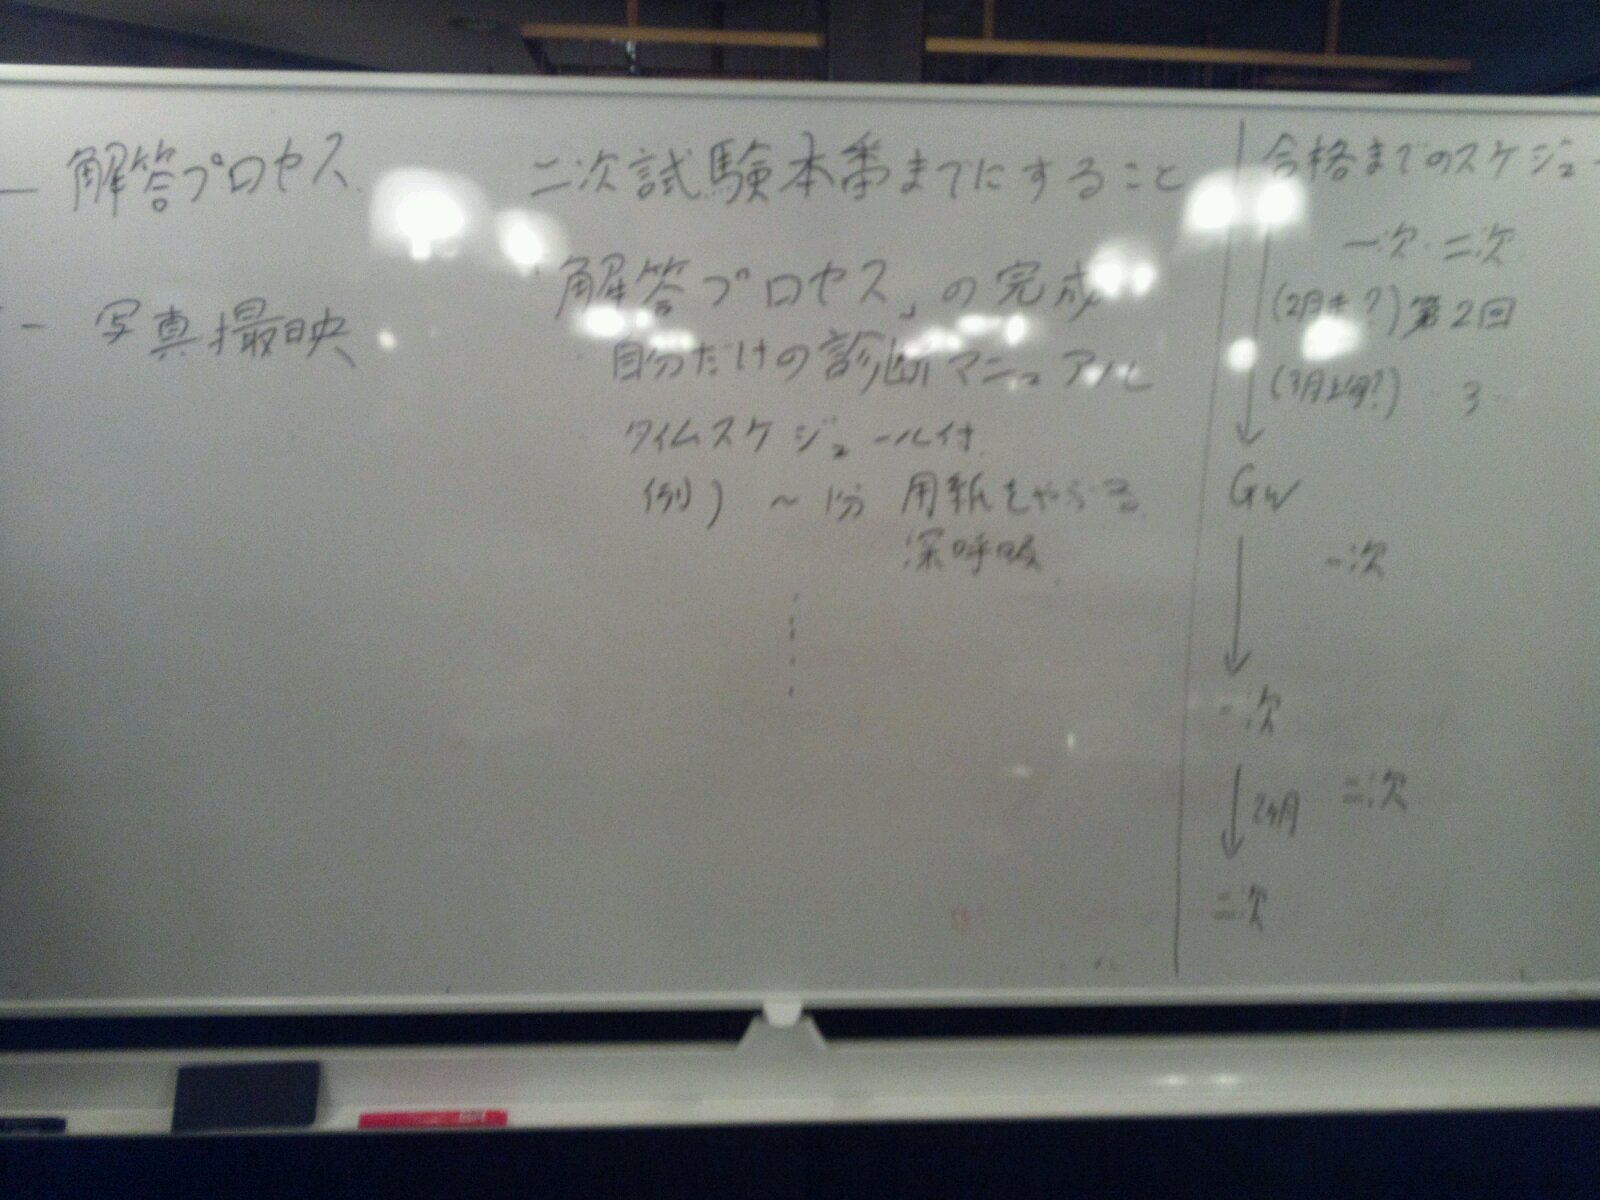 解答プロセス
写真撮映
二次試験本番までにすること
「解答プロセス」の完成
自分だけの診断マニュアル
タイムスケジュール付
例) ~1分 用紙をやぶる
深呼吸
合格までのスケジュー
一次・二次
(2月末?) 第2回
(3月上旬?) 3
GW
一次
一次
2ヶ月 二次
二次